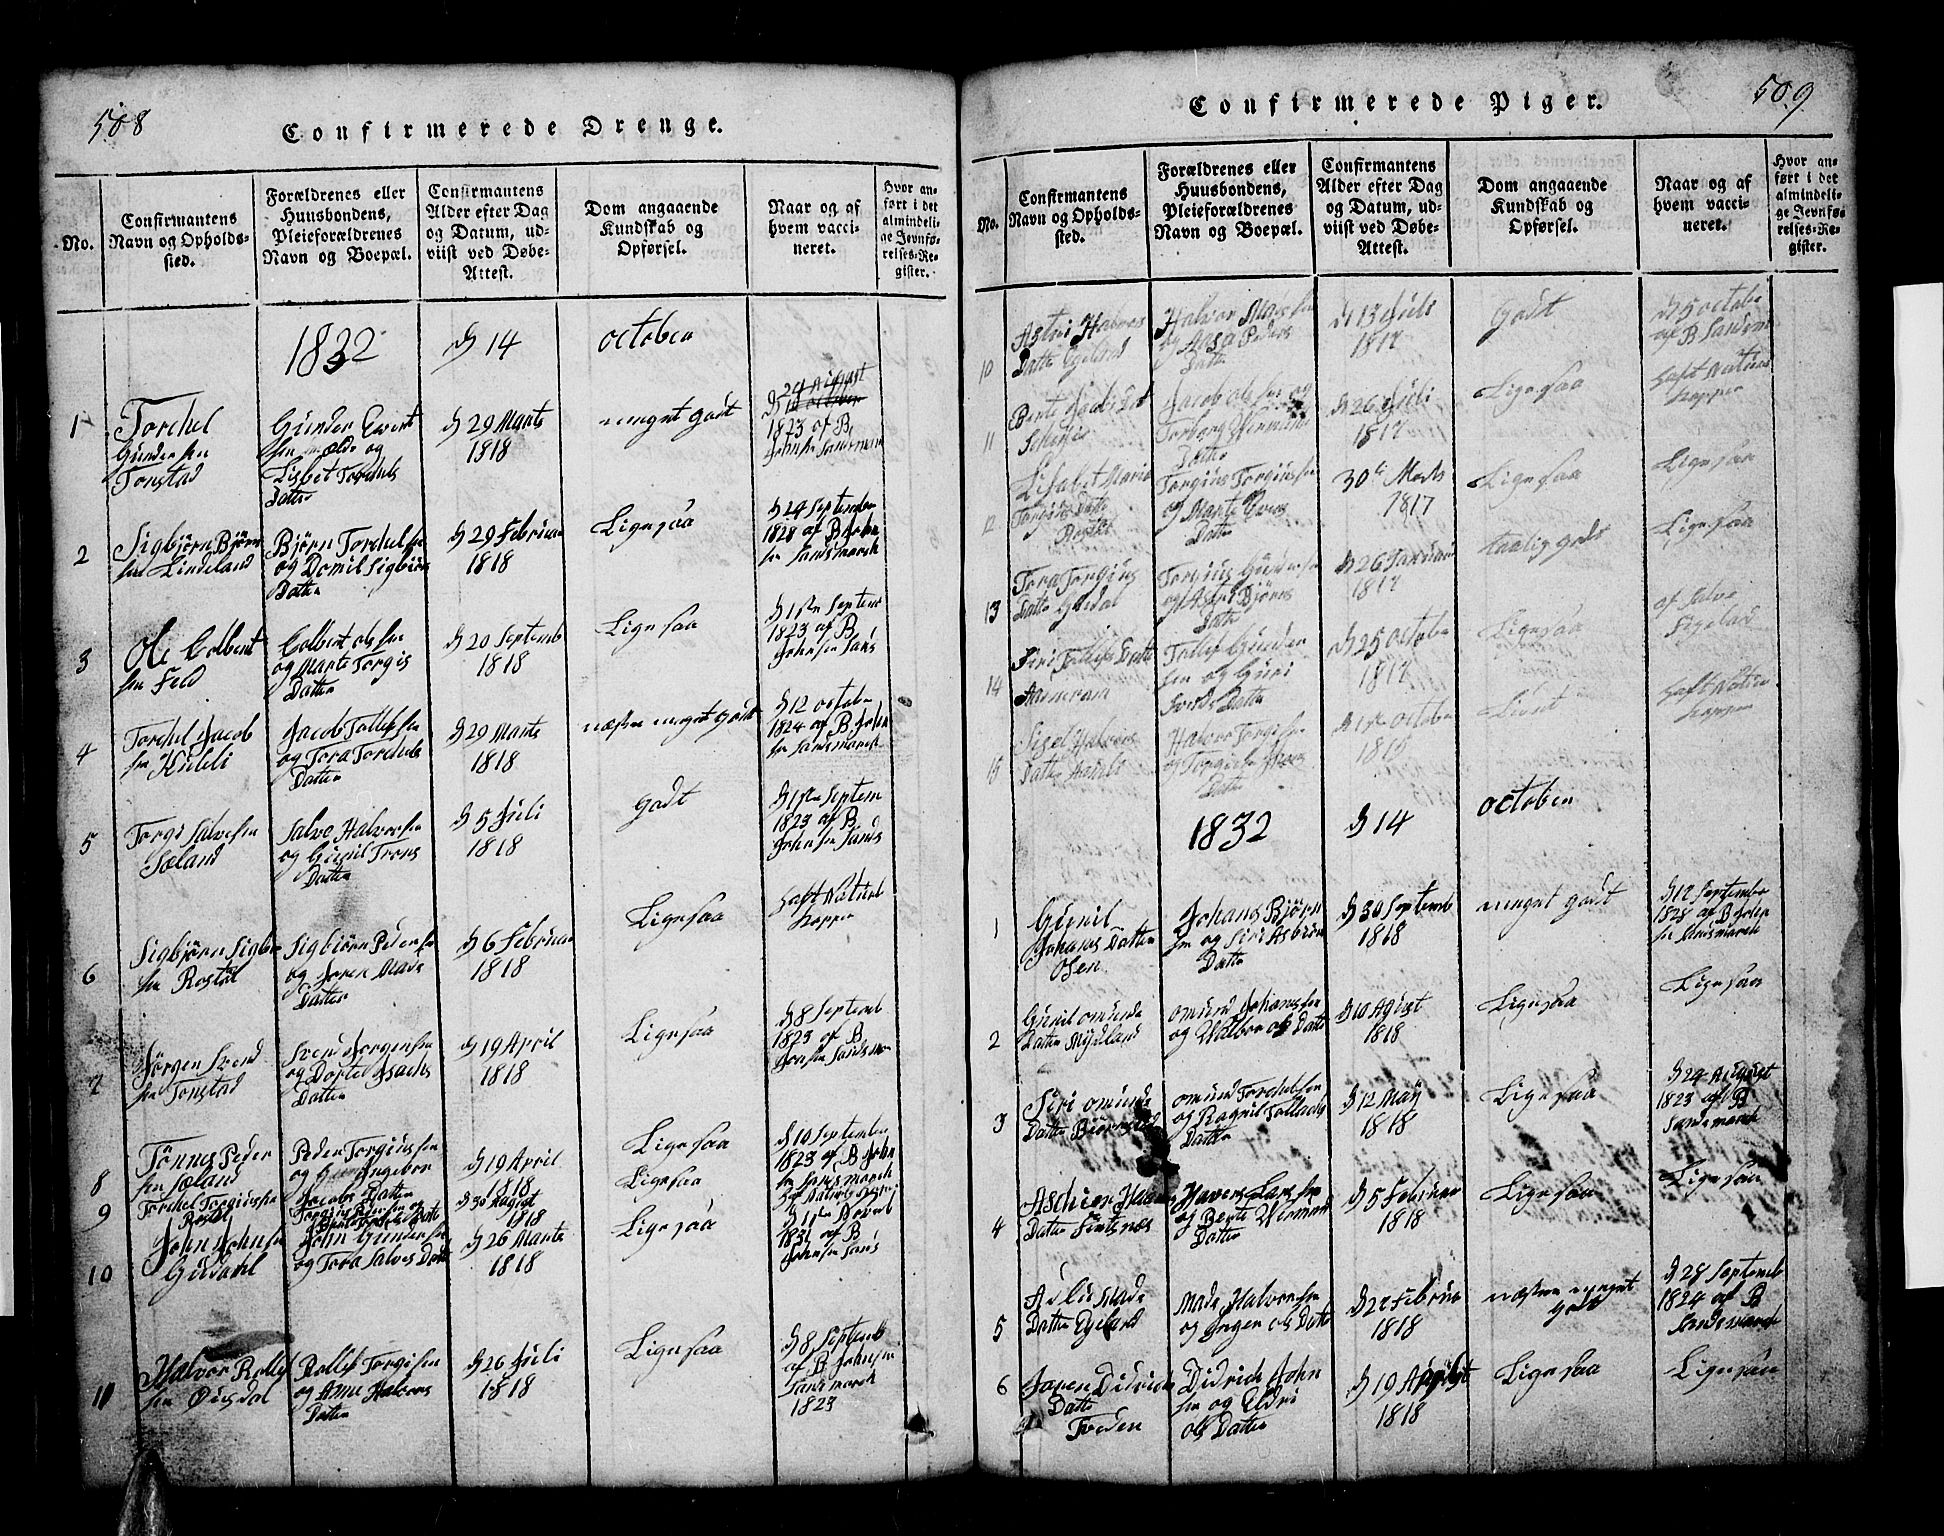 508
Confirmerede Drenge.
No.
Confirmantens
Navn og Opholds-
sted.
Forældrenes eller
Huusbondens,
Pleieforældrenes
Navn og Boepæl.
Confirmantens
Alder efter Dag
og Datum, ud-
viist ved Døbe-
Attest.
Dom angaaende
Kundskab og
Opførsel.
Naar og af
hvem vacci-
neret.
Hvor an-
ført i det
almindeli-
ge Jevnfø-
relses-Re-
gister.
1832 d 14 october
1
Torchel
Gundersen
Tonstad
Gunder Evert
sen og
Lisbet Torchels
Datter
d 29 Marts
1818
meget godt
d 24 August
1823 af B
Johnsen Sandsmark
2
Sigbjörn Bjørn
sen Lindeland
Bjørn Torchelsen
og Domil Sigbiörn
Datter
d 29 Februar
1818
Ligesaa
d 24 September
1828 af B John
sen Sandsmark
3
Ole Colbent
sen Feld
Colbent olsen
og Marte Torgis
Datter
d 20 Septemb
1818
Ligesaa
d 1ste Septem
1823 af B
Johnsen Sands
4
Torchel Jacob
sen Kuleli
Jacob Tollefsen
og Tora Torchels
Datter
d 29 Marts
1818
næsten meget godt
d 12 octobe
1824 af B John
sen Sandsmark
5
Torgi Salvesen
Sæland
Salve Halvorsen
og Gunil Trons
Datter
d 5 Juli
1818
godt
d 1ste Septem
1823 af B
Johnsen Sands
6
Sigbjørn Sigbr
sen Rostöl
Sigbiörn Pedersen
og Joren Mads
Datter
d 6 Februar
1818
Ligesaa
haft Naturl
kopper
7
Jörgen Svend
sen Tonstad
Svend Jorgensen
og Dorte Isachs
Datter
d 19 April
1818
Ligesaa
d 8 Septemb
1823 af B
Jonsen Sandsma
8
Tönnes Peder
sen Sæland
Peder Torgiussen
og Ingebor
Jacobs Datter
d 19 April
1818
Ligesaa
d 10 September
1823 af B John
sen Sandsmarck
9
Torchel Torgiussen
Rostöl
d 30 August
1818
Ligesaa
10
John Johnsen
Gusdahl
John Gundersen
og Tora Salves Datt
d 26 Marts
1818
Ligesaa
d 1ste Novemb
1831 af B
Johnsen Sands
11
Halvor Rollef
sen Øusdal
Rollef Torgisen
og Anne Halvors
Datter
d 26 Juli
1818
Ligesaa
d 8 Septemb
af B Johnsen
Sandsmarck
1823
509
Confirmerede Piger.
No.
Confirmantens
Navn og Opholds-
sted.
Forældrenes eller
Huusbondens,
Pleieforældrenes
Navn og Boepæl.
Confirmantens
Alder efter Dag
og Datum, ud-
viist ved Døbe-
Attest.
Dom angaaende
Kundskab og
Opførsel.
Naar og af
hvem vacci-
neret.
Hvor an-
ført i det
almindeli-
ge Jevnfø-
relses-Re-
gister.
10
Astri Halvors
Datter Egeland
Halvor Madssen
og Aasa Peders
Datter
d 13 Juli
1817
Godt
d 5 octobe
af B Sandsm
11
Bente Jacobs Dat
Jacob olsen og
Torborg
Datter
d 26 Juli
1817
Ligesaa
haft Natur
kopper
12
Lisabet Marie
Torgius Datter
Rostöl
Torgius Torgiussen
og Marte Ivers
Datter
30te Marts
1817
Ligesaa
Ligesaa
13
Tora Torgius
Datter Gusdal
Torgius Gundersen
og Astri Bjørns
Datter
d 26 Januar
1817
taalig godt
Ligesaa
14
Siri Tollefs Datter
Tollef Gunder
sen og Guri
Datter
d 25 octobe
1817
Ligesaa
af Salve
15
Sisel Halvors
Datter
Halvor Torgisen
og
Datter
d 1ste octobe
Ligesaa
haft Natur
kopper
1832 d 14 october
1
Gunil
Johans Datter
Osen
Johans Bjørn
sen og Siri Asbiörn
Datter
d 30 Septemb
1818
meget godt
d 12 Septembe
1828 af B John
sen Sandsmarck
2
Gunil omunds
Datter Mydland
omund Johanssen
og Walbor ols Datte
d 10 August
1818
Ligesaa
Ligesaa
3
Siri omunds
Datter
omund Torchelsen
og Ragnil Tollachs
Datter
d 12 May
1818
Ligesaa
d 24 August
1823 af B
Sandsmarck
4
Datter Fintsnæs
Havor Larssen
og Berte
Datter
d 5 Februar
1818
Ligesaa
Ligesaa
5
Aslu Mads
Datter Egeland
Mads Halvorsen
og Inger ols Datte
Februa
1818
næsten meget
godt
d 28 Septemb
1824 af B
Sandsmarck
6
Joren Didrichs
Datter
Treden
Didrich John
sen og Eldri
ols Datter
d 19 August
1818
Ligesaa
Ligesaa